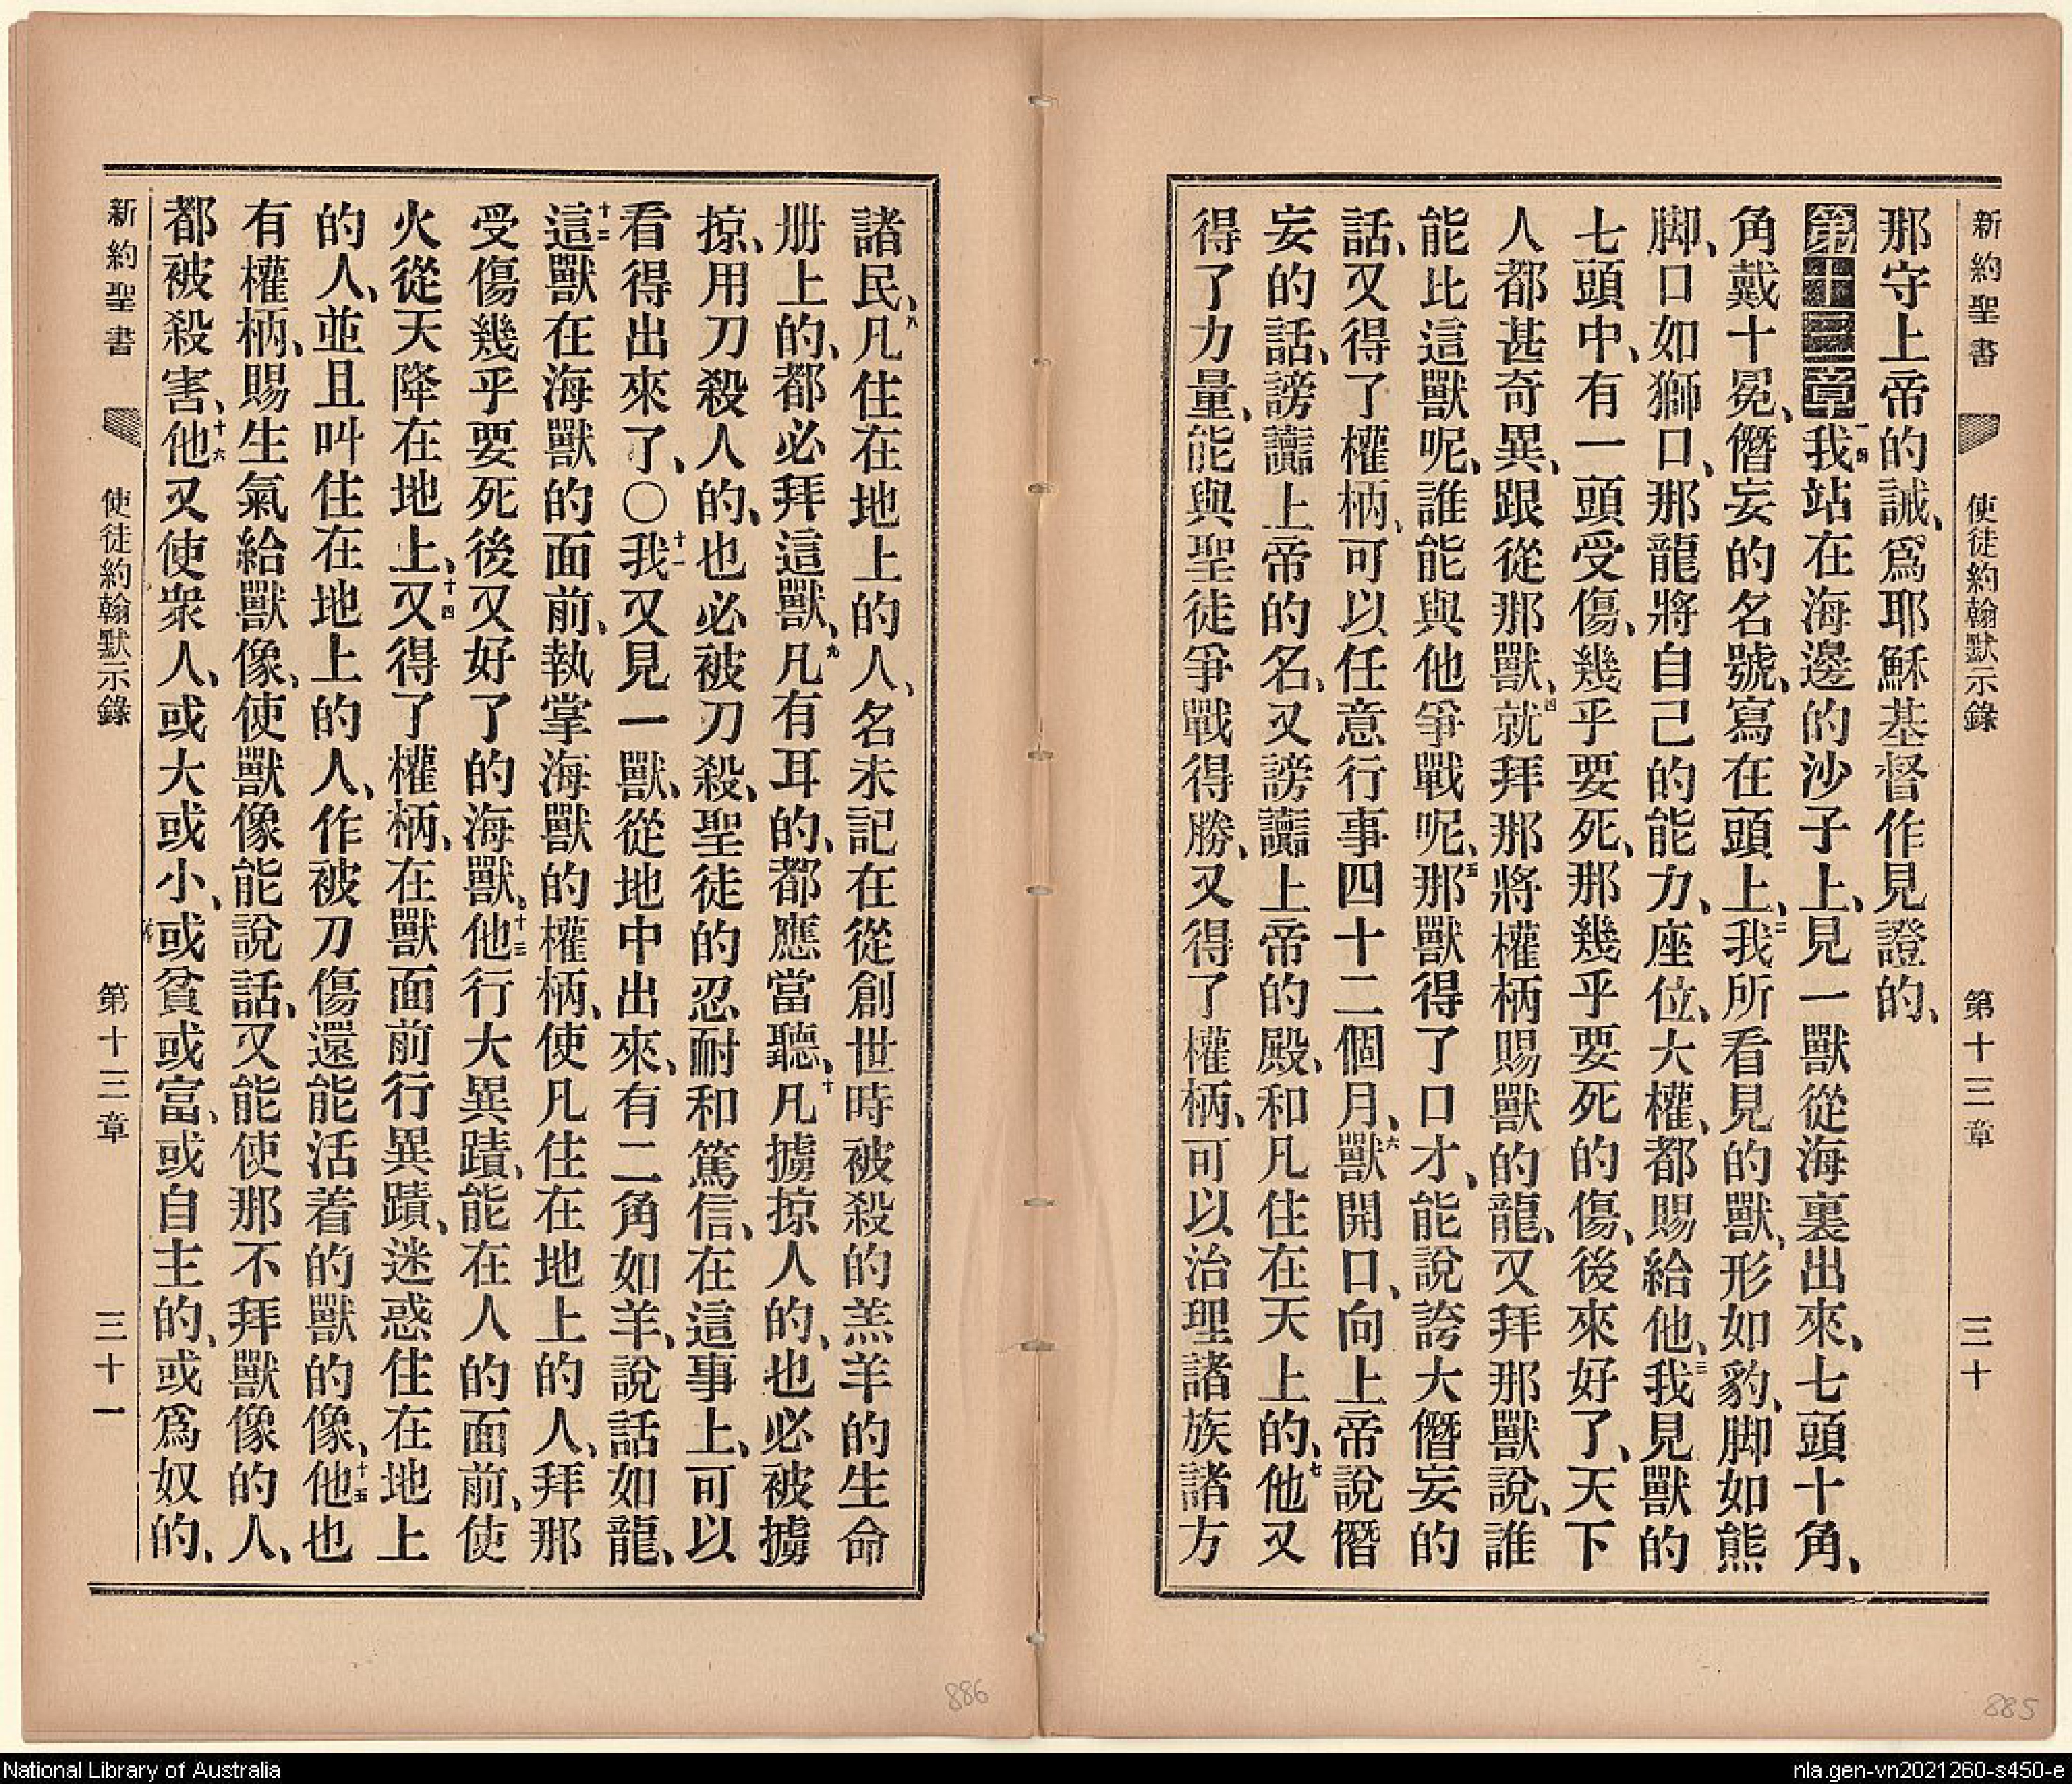 新約聖書 使徒約翰默示錄 第十三章 三十
那守上帝的誡、爲耶穌基督作見證的、
第十三章 一我站在海邊的沙子上、見一獸從海裏出來、七頭十角、
角戴十冕、僭妄的名號、寫在頭上、二我所看見的獸、形如豹、脚如熊
脚、口如獅口、那龍將自己的能力、座位、大權、都賜給他、三我見獸的
七頭中、有一頭受傷、幾乎要死、那幾乎要死的傷、後來好了、天下
人都甚奇異、跟從那獸、四就拜那將權柄賜獸的龍、又拜那獸說、誰
能比這獸呢、誰能與他爭戰呢、五那獸得了口才、能說誇大僭妄的
話、又得了權柄、可以任意行事四十二個月、六獸開口、向上帝說僭
妄的話、謗讟上帝的名、又謗讟上帝的殿、和凡住在天上的、七他又
得了力量、能與聖徒爭戰得勝、又得了權柄、可以治理諸族諸方
諸民、八凡住在地上的人、名未記在從創世時被殺的羔羊的生命
册上的、都必拜這獸、九凡有耳的、都應當聽、十凡擄掠人的、也必被擄
掠、用刀殺人的、也必被刀殺、聖徒的忍耐和篤信、在這事上、可以
看得出來了、○十一我又見一獸、從地中出來、有二角如羊、說話如龍、
十二這獸在海獸的面前、執掌海獸的權柄、使凡住在地上的人、拜那
受傷幾乎要死後又好了的海獸、十三他行大異蹟、能在人的面前、使
火從天降在地上、十四又得了權柄、在獸面前行異蹟、迷惑住在地上
的人、並且叫住在地上的人、作被刀傷還能活着的獸的像、十五他也
有權柄、賜生氣給獸像、使獸像能說話、又能使那不拜獸像的人、
都被殺害、十六他又使衆人、或大或小、或貧或富、或自主的、或爲奴的、
新約聖書 使徒約翰默示錄 第十三章 三十一
886
885
National Library of Australia
nla.gen-vn2021260-s450-e